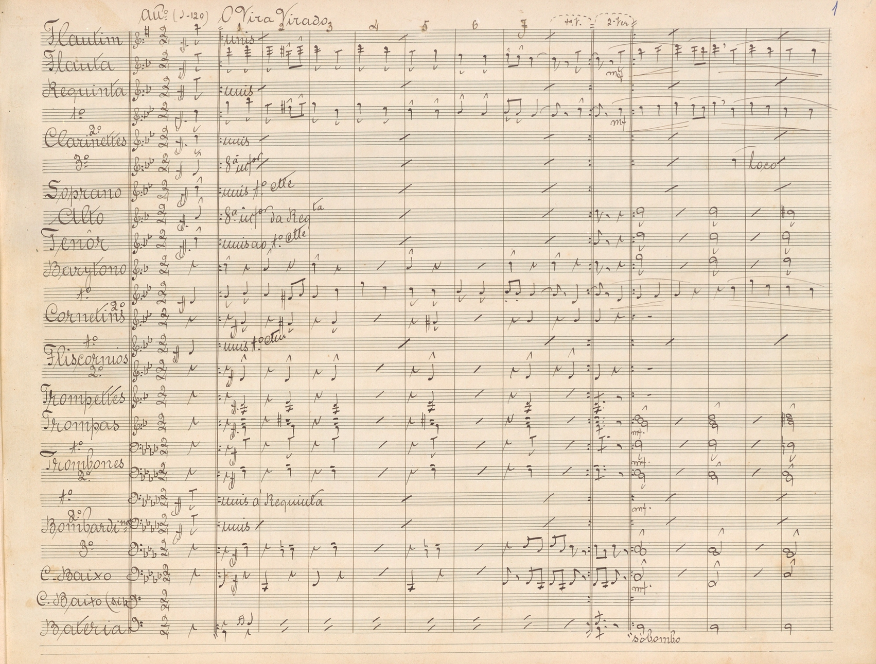 All.º (♩=120) O Vira Virado 1
1 2 3 4 5 6 7 1ª V. 2ª Vez
Flautim unis
Flauta mf
Requinta unis
1º mf
Clarinettes 2º unis
3º 8ª infor loco
Soprano unis 1º Cltte
Alto 8ª infor da Reqta
Tenôr unis ao 1º Cltte
Barytono
1º
Cornetins 2º
1º unis 1º Ctim
Fliscornios
2º
Trompettes
Trompas mf.
1º
Trombones mf.
2º
1º unis á Requinta mf.
2º
Bombardinos unis
3º
C. Baixo mf.
C. Baixo (Sib)
Bateria
só bombo